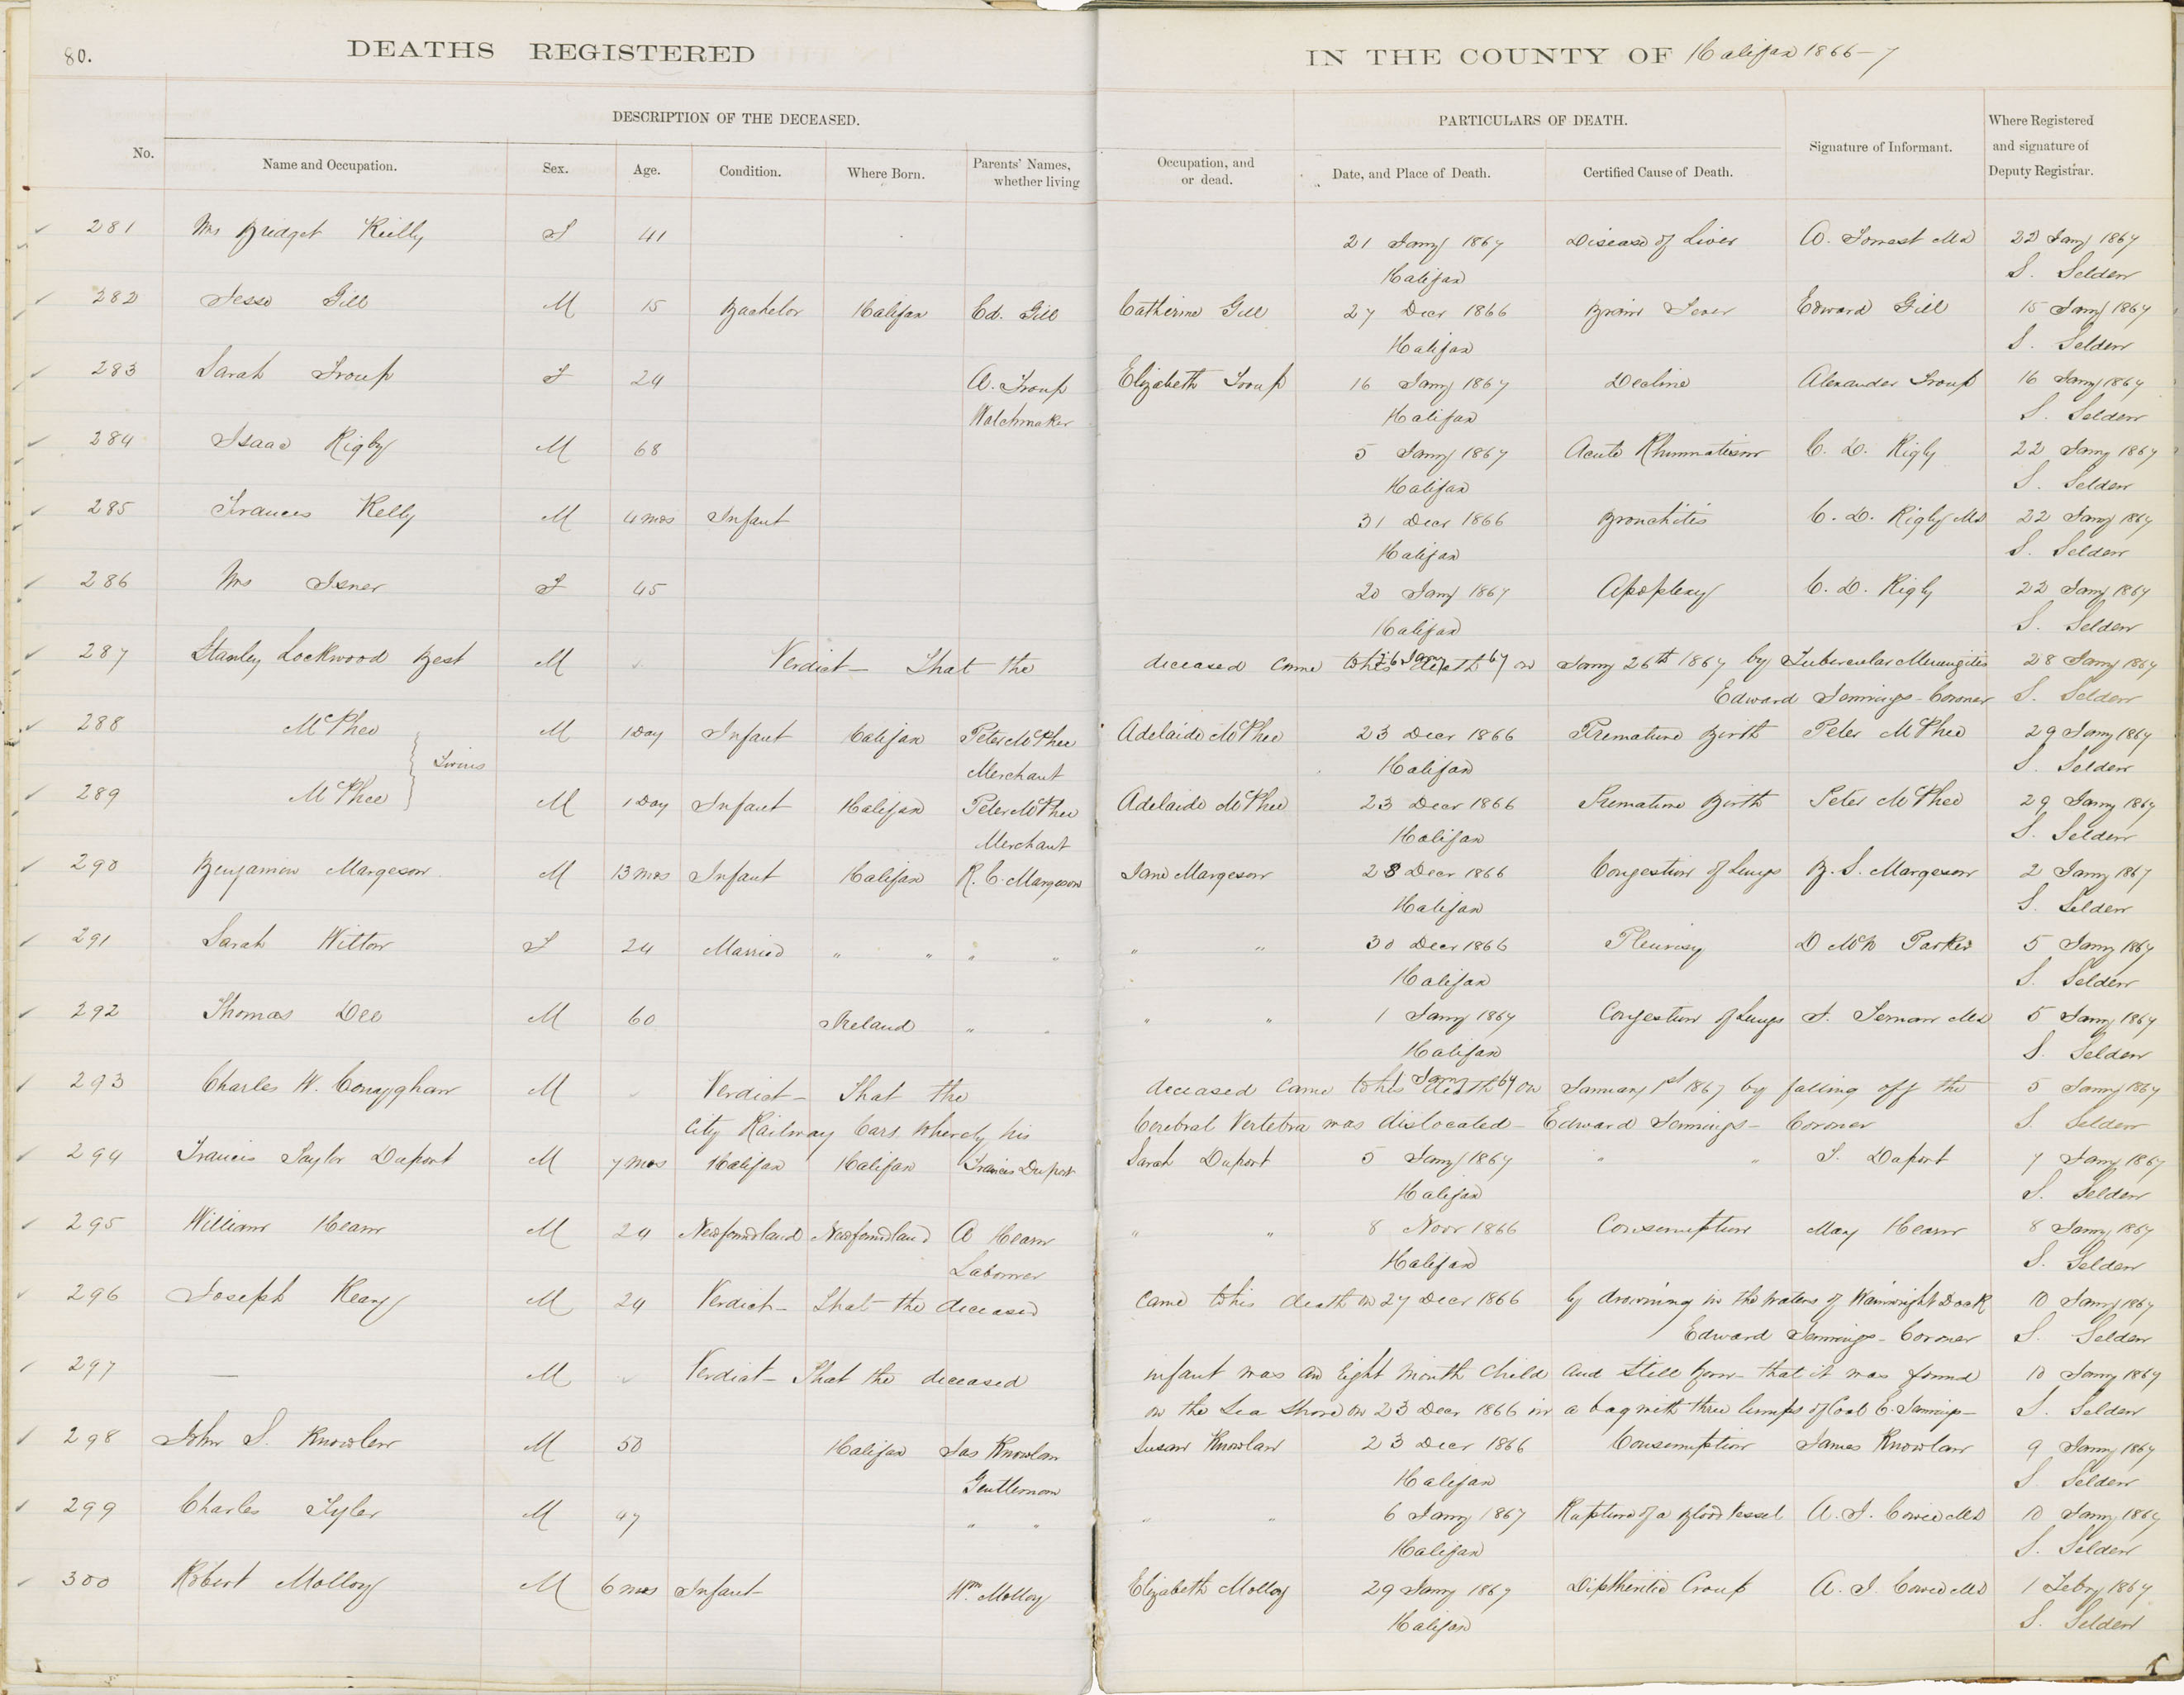 80.
DEATHS REGISTERED IN THE COUNTY OF Halifax 1866-7
DESCRIPTION OF THE DECEASED. PARTICULARS OF DEATH.
No. Name and Occupation. Sex. Age. Condition. Where Born. Parents' Names, whether living Occupation, and or dead. Date, and Place of Death. Certified Cause of Death. Signature of Informant. Where Registered and signature of Deputy Registrar.
281 Mrs Bridget Reilly F 41 21 Jany 1867 Disease of Liver A. Forrest MD 22 Jany 1867
Halifax S. Selden
282 Jesse Gill M 15 Bachelor Halifax Ed. Gill Catherine Gill 27 Decr 1866 Brain Fever Edward Gill 15 Jany 1867
Halifax S. Selden
283 Sarah Troup F 24 A. Troup Elizabeth Troup 16 Jany 1867 Decline Alexander Troup 16 Jany 1867
Watchmaker Halifax S. Selden
284 Isaac Rigby M 68 5 Jany 1867 Acute Rhumatism C. D. Rigby 22 Jany 1867
Halifax S. Selden
285 Frances Kelly M 4 mos Infant 31 Decr 1866 Bronchitis C. D. Rigby MD 22 Jany 1867
Halifax S. Selden
286 Mrs Isner F 45 20 Jany 1867 Apoplexy C. D. Rigby 22 Jany 1867
Halifax S. Selden
287 Stanley Lockwood Best M Verdict - That the deceased came to his death on Jany 26th 1867 by Tubercular Meningitis 28 Jany 1867
26 Jany 67
Edward Jennings - Coroner S. Selden
288 McPhee M 1 Day Infant Halifax Peter McPhee Adelaide McPhee 23 Decr 1866 Premature Birth Peter McPhee 29 Jany 1867
Twins Merchant Halifax S. Selden
289 McPhee M 1 Day Infant Halifax Peter McPhee Adelaide McPhee 23 Decr 1866 Premature Birth Peter McPhee 29 Jany 1867
Merchant Halifax S. Selden
290 Benjamin Margeson M 13 mos Infant Halifax R. C. Margeson Jane Margeson 28 Decr 1866 Congestion of Lungs B. S. Margeson 2 Jany 1867
Halifax S. Selden
291 Sarah Witton F 24 Married " " " " " " 30 Decr 1866 Pleurisy D McN Parker 5 Jany 1867
Halifax S. Selden
292 Thomas Dee M 60 Ireland " " " " 1 Jany 1867 Congestion of Lungs MD 5 Jany 1867
Halifax S. Selden
293 Charles W. Conyghan M Verdict - That the deceased came to his death on January 1st 1867 by falling off the 5 Jany 1867
Jany 67
City Railway Cars whereby his Cerebral Vertebra was dislocated - Edward Jennings - Coroner S. Selden
294 Francis Taylor Duport M 7 mos Halifax Halifax Francis Duport Sarah Duport 5 Jany 1867 " " F. Duport 7 Jany 1867
Halifax S. Selden
295 William Hearn M 24 Newfoundland Newfoundland A Hearn " " 8 Novr 1866 Consumption May Hearn 8 Jany 1867
Labourer Halifax S. Selden
296 Joseph Keary M 24 Verdict - That the deceased came to his death on 27 Decr 1866 by drowning in the waters of Wainwright Dock 10 Jany 1867
Edward Jennings - Coroner S. Selden
297 — M Verdict - That the deceased infant was an Eight Month Child and Still Born - that it was found 10 Jany 1867
on the Sea Shore on 23 Decr 1866 in a bag with three lumps of Coal E. Jennings - S. Selden
298 John S. Knowlan M 50 Halifax Jas Knowlan Susan Knowlan 23 Decr 1866 Consumption James Knowlan 9 Jany 1867
Gentleman Halifax S. Selden
299 Charles Tyler M 47 " " " " 6 Jany 1867 Rupture of a Blood Vessel A. J. Cowie MD 10 Jany 1867
Halifax S. Selden
300 Robert Molloy M 6 mos Infant Wm. Molloy Elizabeth Molloy 29 Jany 1867 Diptheritic Croup A. J. Cowie MD 1 Febry 1867
Halifax S. Selden